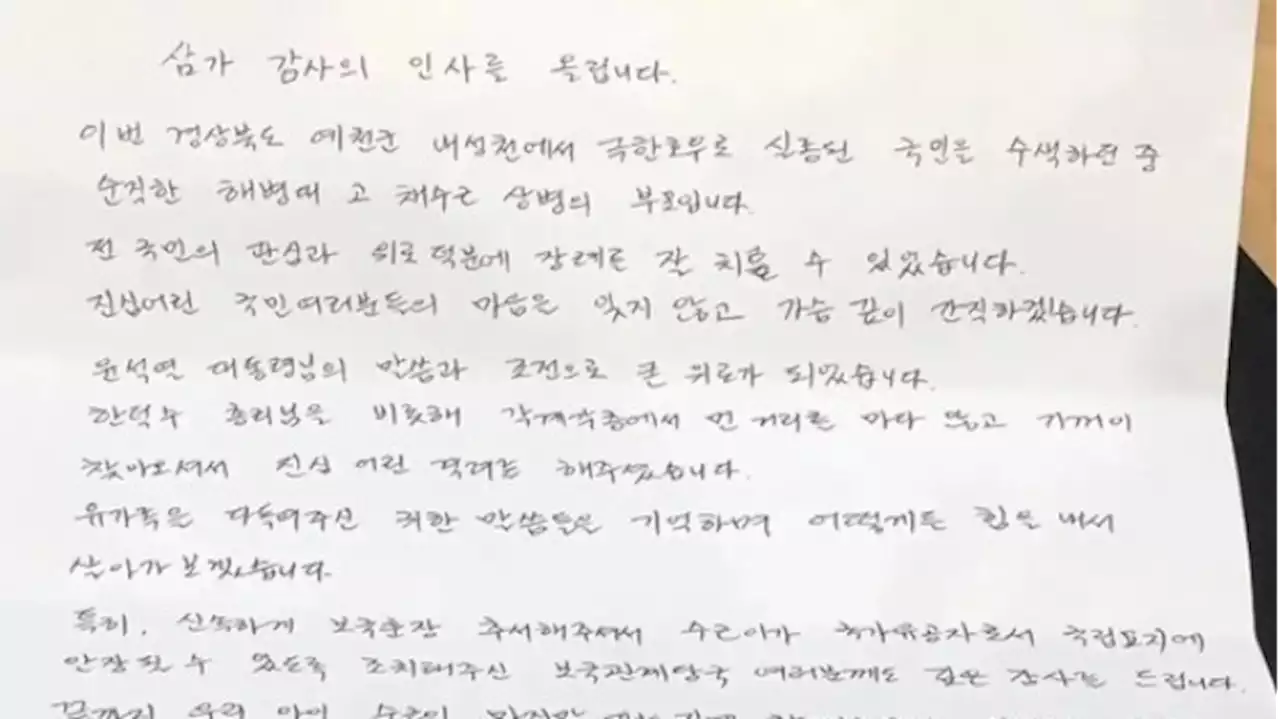 삼가 감사의 인사를 올립니다.
이번 경상북도 예천군 내성천에서 극한호우로 실종된 국민을 수색하던 중
순직한 해병대 고 채수근 상병의 부모입니다.
전 국민의 관심과 위로 덕분에 장례를 잘 치를 수 있었습니다.
진심어린 국민여러분들의 마음을 잊지 않고 가슴 깊이 간직하겠습니다.
윤석열 대통령님의 말씀과 조전으로 큰 위로가 되었습니다.
한덕수 총리님을 비롯해 각계각층에서 먼 거리를 마다 않고 기꺼이
찾아오셔서 진심 어린 격려를 해주셨습니다.
유가족을 다독여주신 귀한 말씀들을 기억하며 어떻게든 힘을 내서
살아가 보겠습니다.
특히, 신속하게 보국훈장 추서해주셔서 수근이가 국가유공자로서 국립묘지에
안장 될 수 있도록 조치해주신 보국관계당국 여러분께도 깊은 감사를 드립니다.
끝까지 우리 아이 수근이 마지막